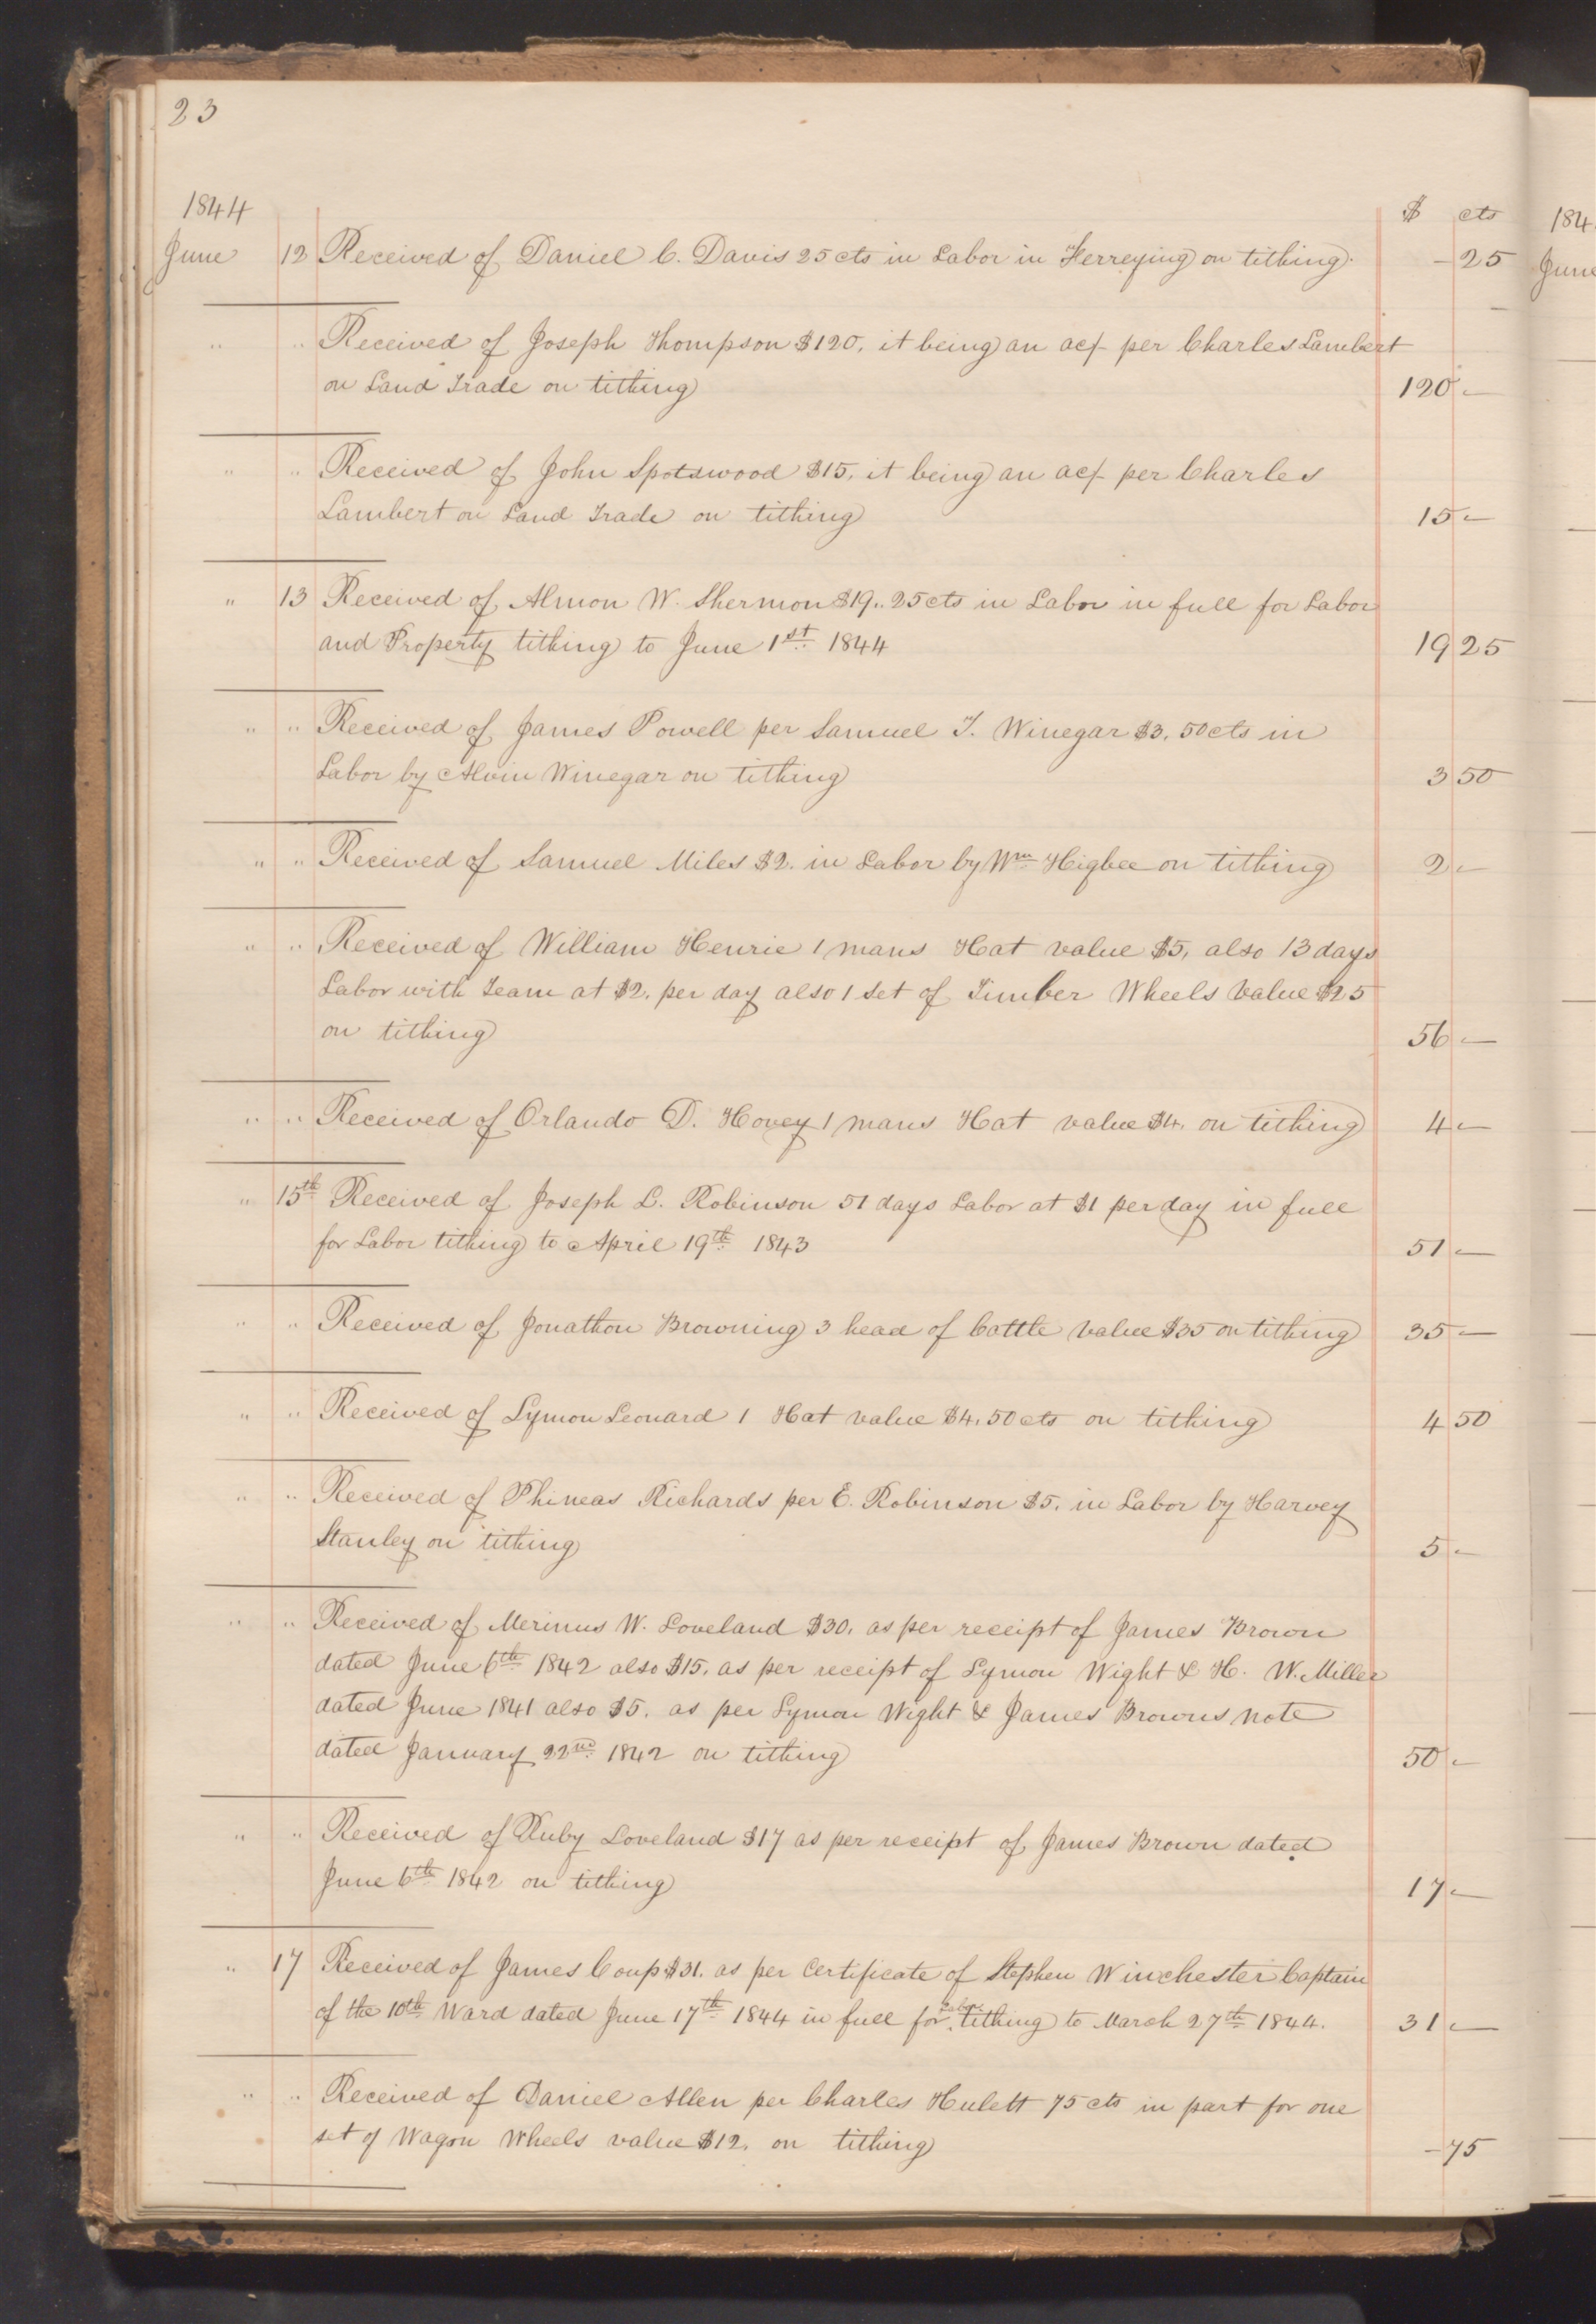 23
1844 $ cts
June 12 Received of Daniel C. Davis 25 cts in Labor in Ferreying on tithing. - 25
" " Received of Joseph Thompson $120, it being an acf per Charles Lambert
on Land Trade on tithing 120 -
" " Received of John Spotswood $15, it being an acf per Charles
Lambert on Land Trade on tithing 15 -
" 13 Received of Almon W. Shermon $19.. 25 cts in Labor in full for Labor
and Property tithing to June 1st 1844 19 25
" " Received of James Powell per Samuel T. Winegar $3, 50 cts in
Labor by Alvin Winegar on tithing 3 50
" " Received of Samuel Miles $2. in Labor by Wm Higbee on tithing 2 -
" " Received of William Henrie 1 mans Hat value $5, also 13 days
Labor with Team at $2. per day also 1 set of Timber Wheels value $25
on tithing 56 -
" " Received of Orlando D. Hovey 1 mans Hat value $4. on tithing 4 -
" 15th Received of Joseph L. Robinson 51 days Labor at $1 per day in full
for Labor tithing to April 19th 1843 51 -
" " Received of Jonathon Browning 3 head of Cattle value $35 on tithing 35 -
" " Received of Lymon Leonard 1 Hat value $4, 50 cts on tithing 4 50
" " Received of Phineas Richards per E. Robinson $5. in Labor by Harvey
Stanley on tithing 5 -
" " Received of Merinus W. Loveland $30, as per receipt of James Brown
dated June 6th 1842 also $15, as per receipt of Lymon Wight & H. W. Miller
dated June 1841 also $5. as per Lymon Wight & James Browns note
dated January 22nd 1842 on tithing 50 -
" " Received of Ruby Loveland $17 as per receipt of James Brown dated
June 6th 1842 on tithing 17 -
" 17 Received of James Coup $31. as per Certificate of Stephen Winchester Captain
of the 10th Ward dated June 17th 1844 in full for Labor tithing to March 27th 1844. 31 -
" " Received of Daniel Allen per Charles Hulett 75 cts in part for one
set of Wagon Wheels value $12, on tithing - 75
184
June